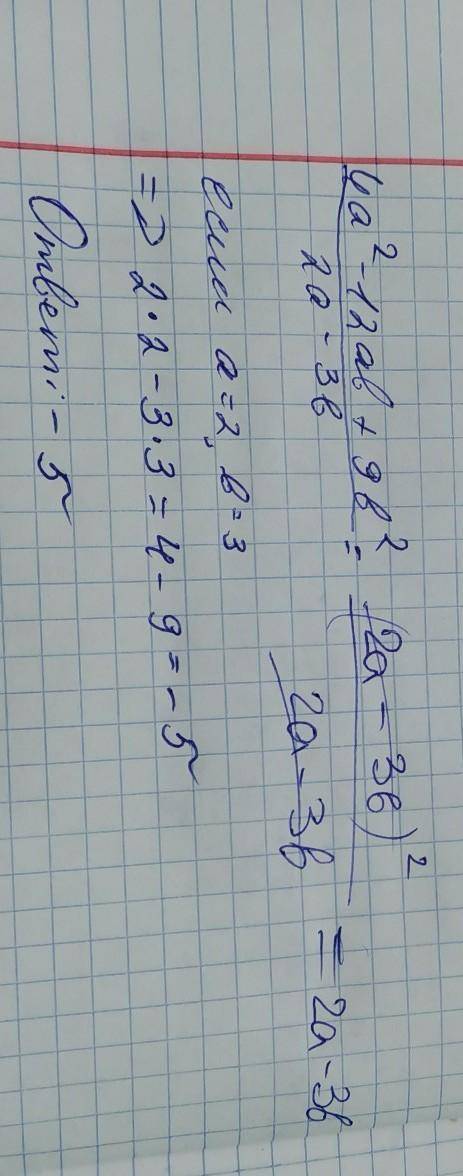 4a² - 12ab + 9b² / 2a - 3b = (2a - 3b)² / 2a - 3b = 2a - 3b
если a = 2, b = 3
=> 2 · 2 - 3 · 3 = 4 - 9 = - 5
Ответ: - 5